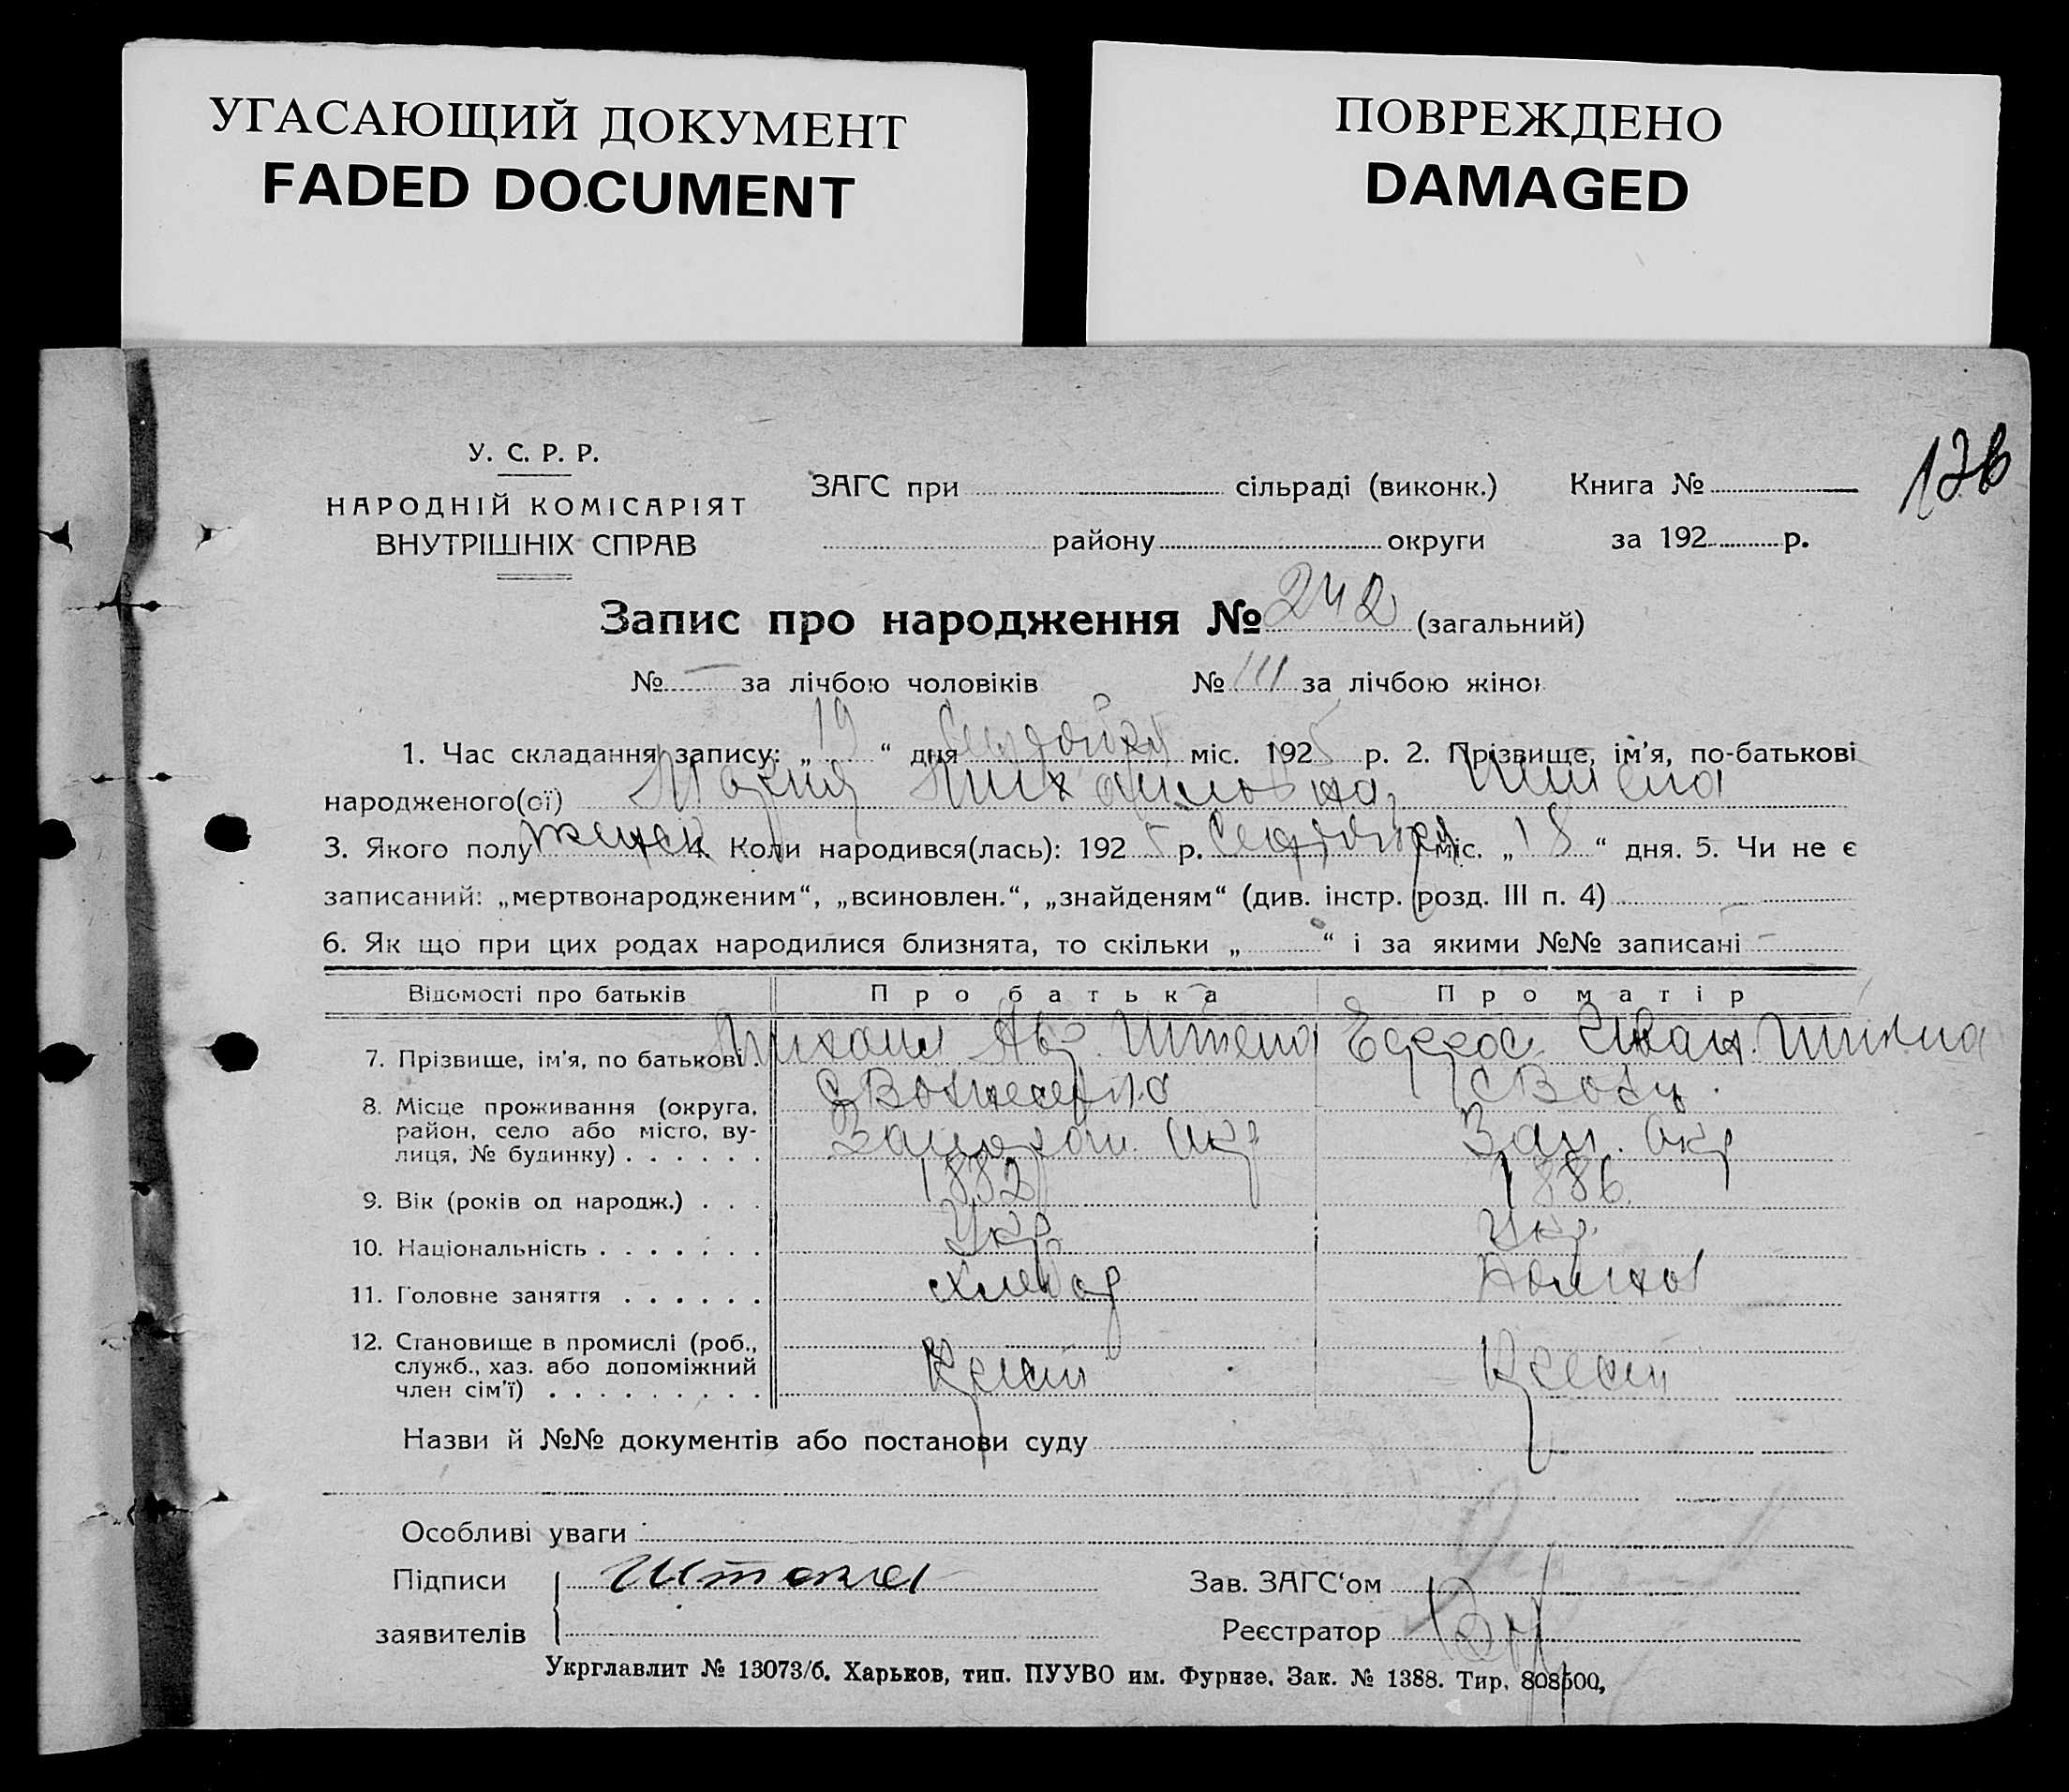 УГАСАЮЩИЙ ДОКУМЕНТ
FADED DOCUMENT
ПОВРЕЖДЕНО
DAMAGED
У. С. Р. Р.
НАРОДНІЙ КОМІСАРІЯТ
ВНУТРІШНІХ СПРАВ
ЗАГС при сільраді (виконк.) Книга №
району округи за 192 р.
Запис про народження № 242 (загальний)
№ — за лічбою чоловіків № 111 за лічбою жінок
1. Час складання запису: „19“ дня Сентября міс. 1925 р. 2. Прізвище, ім'я, по-батькові
народженого(ої) Мария Михайловна Штепа
3. Якого полу женск 4. Коли народився(лась): 1925 р. Сентября міс. „18“ дня. 5. Чи не є
записаний: „мертвонародженим“, „всиновлен.“, „знайденям“ (див. інстр. розд. III п. 4)
6. Як що при цих родах народилися близнята, то скільки „ “ і за якими №№ записані —
Відомості про батьків Про батька Про матір
7. Прізвище, ім'я, по батькові. Михаил Ав. Штепа Иван. Штепа
8. Місце проживання (округа, район, село або місто, вулиця, № будинку) с Вознесенка с Возн.
Запорож. Окр Зап. Окр
9. Вік (років од народж.) 1882 1886
10. Національність Укр Укр.
11. Головне заняття хлебор Домхоз
12. Становище в промислі (роб., служб., хаз. або допоміжний член сім'ї) Крест Крест
Назви й №№ документів або постанови суду
Особливі уваги
Підписи Штепа Зав. ЗАГС'ом
заявителів Реєстратор
Укрглавлит № 13073/б. Харьков, тип. ПУУВО им. Фурнзе. Зак. № 1388. Тир. 808500,